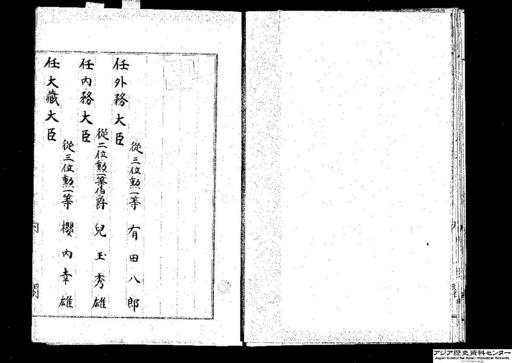 任外務大臣
從三位勲一等 有田八郎
任内務大臣
從二位勲一等伯爵 兒玉秀雄
任大藏大臣
從三位勲一等 櫻内幸雄
内閣
アジア歴史資料センター
Japan Center for Asian Historical Records